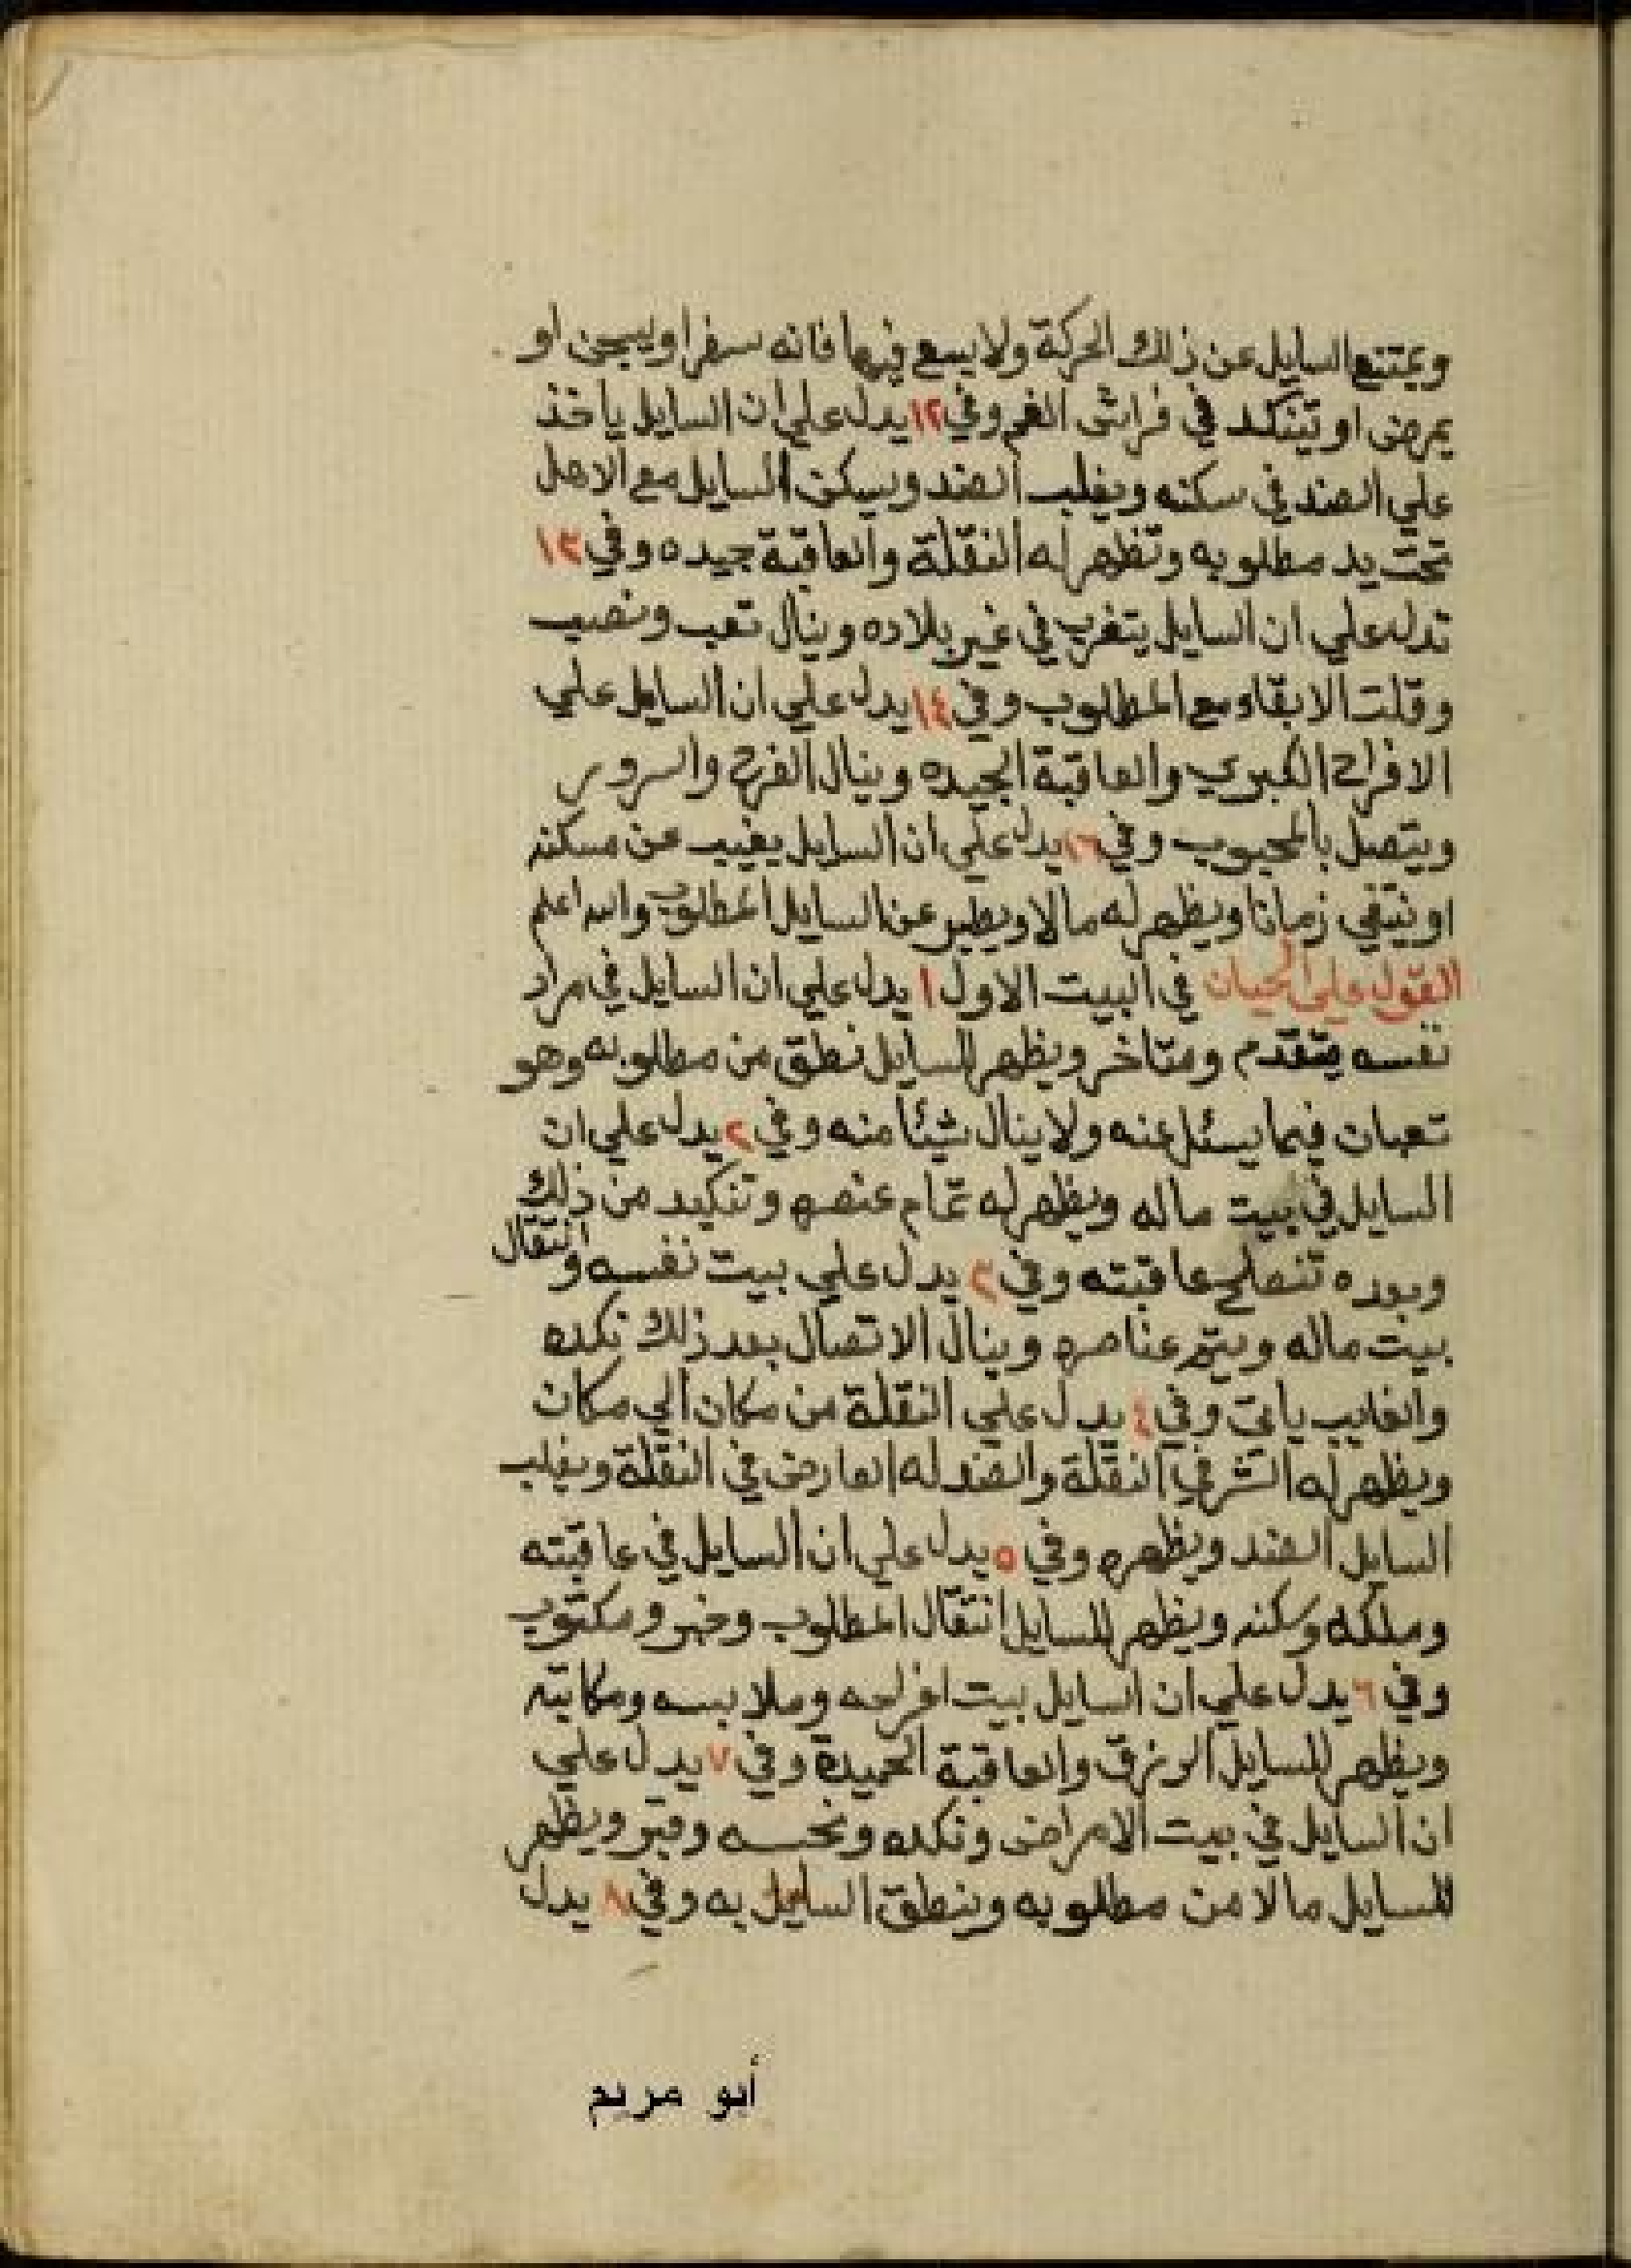 ويمتنع السايل عن ذلك الحركة ولا يسع فيها فانه سفر او يسجن او
يمرض او تينكد في فراش الغم وفي ١٢ يدل علي ان السايل ياخذ
علي الضد في سكنه ويغلب الضد ويسكن السايل مع الاهل
تحت يد مطلوبه وتظهر له النقلة والعاقبة جيده وفي ١٣
تدل علي ان السايل يتغرب في غير بلاده وينال تعب ونصب
وقلت الابقاء مع المطلوب وفي ١٤ يدل علي ان السايل علي
الافراح الكبري والعاقبة الجيده وينال الفرح والسرور
ويتصل بالمحبوب وفي ١٦ يدل علي ان السايل يغيب عن مسكنه
او ينتفي زمانا ويظهر له مالا ويطير عن السايل المطلوب والله اعلم
القول علي الحيان في البيت الاول ١ يدل علي ان السايل في مراد
نفسه يتقدم ومتاخر ويظهر للسايل نطق من مطلوبه وهو
تعبان فيما يسئل عنه ولا ينال شيئا منه وفي ٢ يدل علي ان
السايل في بيت ماله ويظهر له تمام عنصره وتنكيد من ذلك
وبعده تنصلح عاقبته وفي ٣ يدل علي بيت نفسه وانتقال
بيت ماله ويتم عناصره وينال الاتصال بعد ذلك نكده
والغايب ياتي وفي ٤ يدل علي النقلة من مكان الي مكان
ويظهر له الشر في النقلة والضد له العارض في النقلة ويغلب
السايل الضد ويظهره وفي ٥ يدل علي ان السايل في عاقبته
وملكه وسكنه ويظهر للسايل انتقال المطلوب وخبر ومكتوب
وفي ٦ يدل علي ان السايل بيت افراحه وملابسه ومكاتبه
ويظهر للسايل الرزق والعاقبة الحميدة وفي ٧ يدل علي
ان السايل في بيت الامراض ونكده ونحسه وقبر ويظهر
للسايل مالا من مطلوبه وينطق السايل به وفي ٨ يدل
أبو مريم